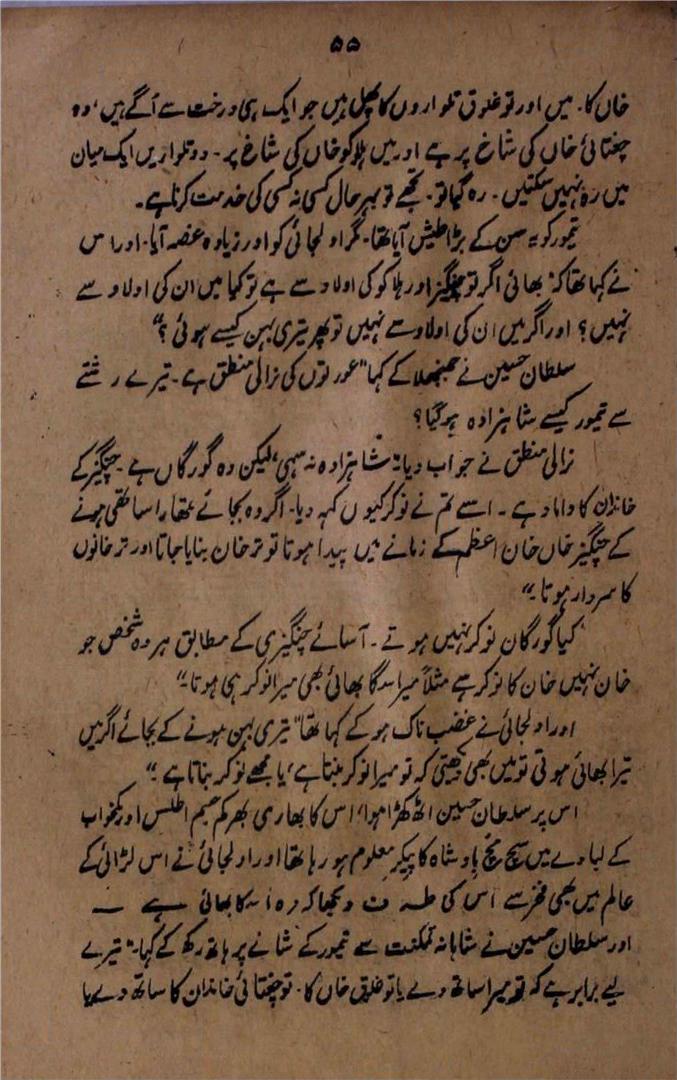 ۵۵
خاں کا۔ میں اور توغلوق تلواروں کا پھل ہیں جو ایک ہی درخت سے اُگے ہیں، وہ
چغتائی خاں کی شاخ پر ہے اور میں ہلاکو خاں کی شاخ پر۔ دو تلواریں ایک میان
میں رہ نہیں سکتیں۔ رہ گیا تو۔ تجھے تو بہرحال کسی نہ کسی کی خدمت کرنا ہے۔
تیمور کو یہ سن کے بڑا طیش آیا تھا۔ مگر اولجائی کو اور زیادہ غصہ آیا۔ اور اس
نے کہا تھا کہ "بھائی اگر تو چنگیز اور ہلاکو کی اولاد سے ہے تو کیا میں ان کی اولاد سے
نہیں؟ اور اگر میں ان کی اولاد سے نہیں تو پھر تیری بہن کیسے ہوئی؟"
سلطان حسین نے جھنجھلا کے کہا "عورتوں کی نرالی منطق ہے۔ تیرے رشتے
سے تیمور کیسے شاہزادہ ہو گیا؟
نرالی منطق نے جواب دیا: "شاہزادہ نہ سہی، لیکن وہ گورگاں ہے۔ چنگیز کے
خاندان کا داماد ہے۔ اسے تم نے نوکر کیوں کہہ دیا۔ اگر وہ بجائے تمھارا ساتھی ہونے
کے چنگیز خاں خان اعظم کے زمانے میں پیدا ہوتا تو ترخان بنایا جاتا اور ترخانوں
کا سردار ہوتا۔"
"کیا گورگان نوکر نہیں ہوتے۔ آسائے چنگیزی کے مطابق ہر وہ شخص جو
خان نہیں خان کا نوکر ہے مثلاً میرا سگا بھائی بھی میرا نوکر ہی ہوتا۔"
اور اولجائی نے غضب ناک ہو کے کہا تھا "تیری بہن ہونے کے بجائے اگر میں
تیرا بھائی ہوتی تو میں بھی دیکھتی کہ تو میرا نوکر بنتا ہے، یا مجھے نوکر بناتا ہے۔"
اس پر سلطان حسین اٹھ کھڑا ہوا، اس کا بھاری بھرکم جسم اطلس اور کمخواب
کے لبادے میں سچ مچ بادشاہ کا پیکر معلوم ہو رہا تھا اور اولجائی نے اس لڑائی کے
عالم میں بھی فخر سے اس کی طرف دیکھا کہ وہ اس کا بھائی ہے ــ
اور سلطان حسین نے شاہانہ تمکنت سے تیمور کے شانے پر ہاتھ رکھ کے کہا۔ "تیرے
لیے برابر ہے کہ تو میرا ساتھ دے یا توغلوق خاں کا۔ تو چغتائی خاندان کا ساتھ دے یا